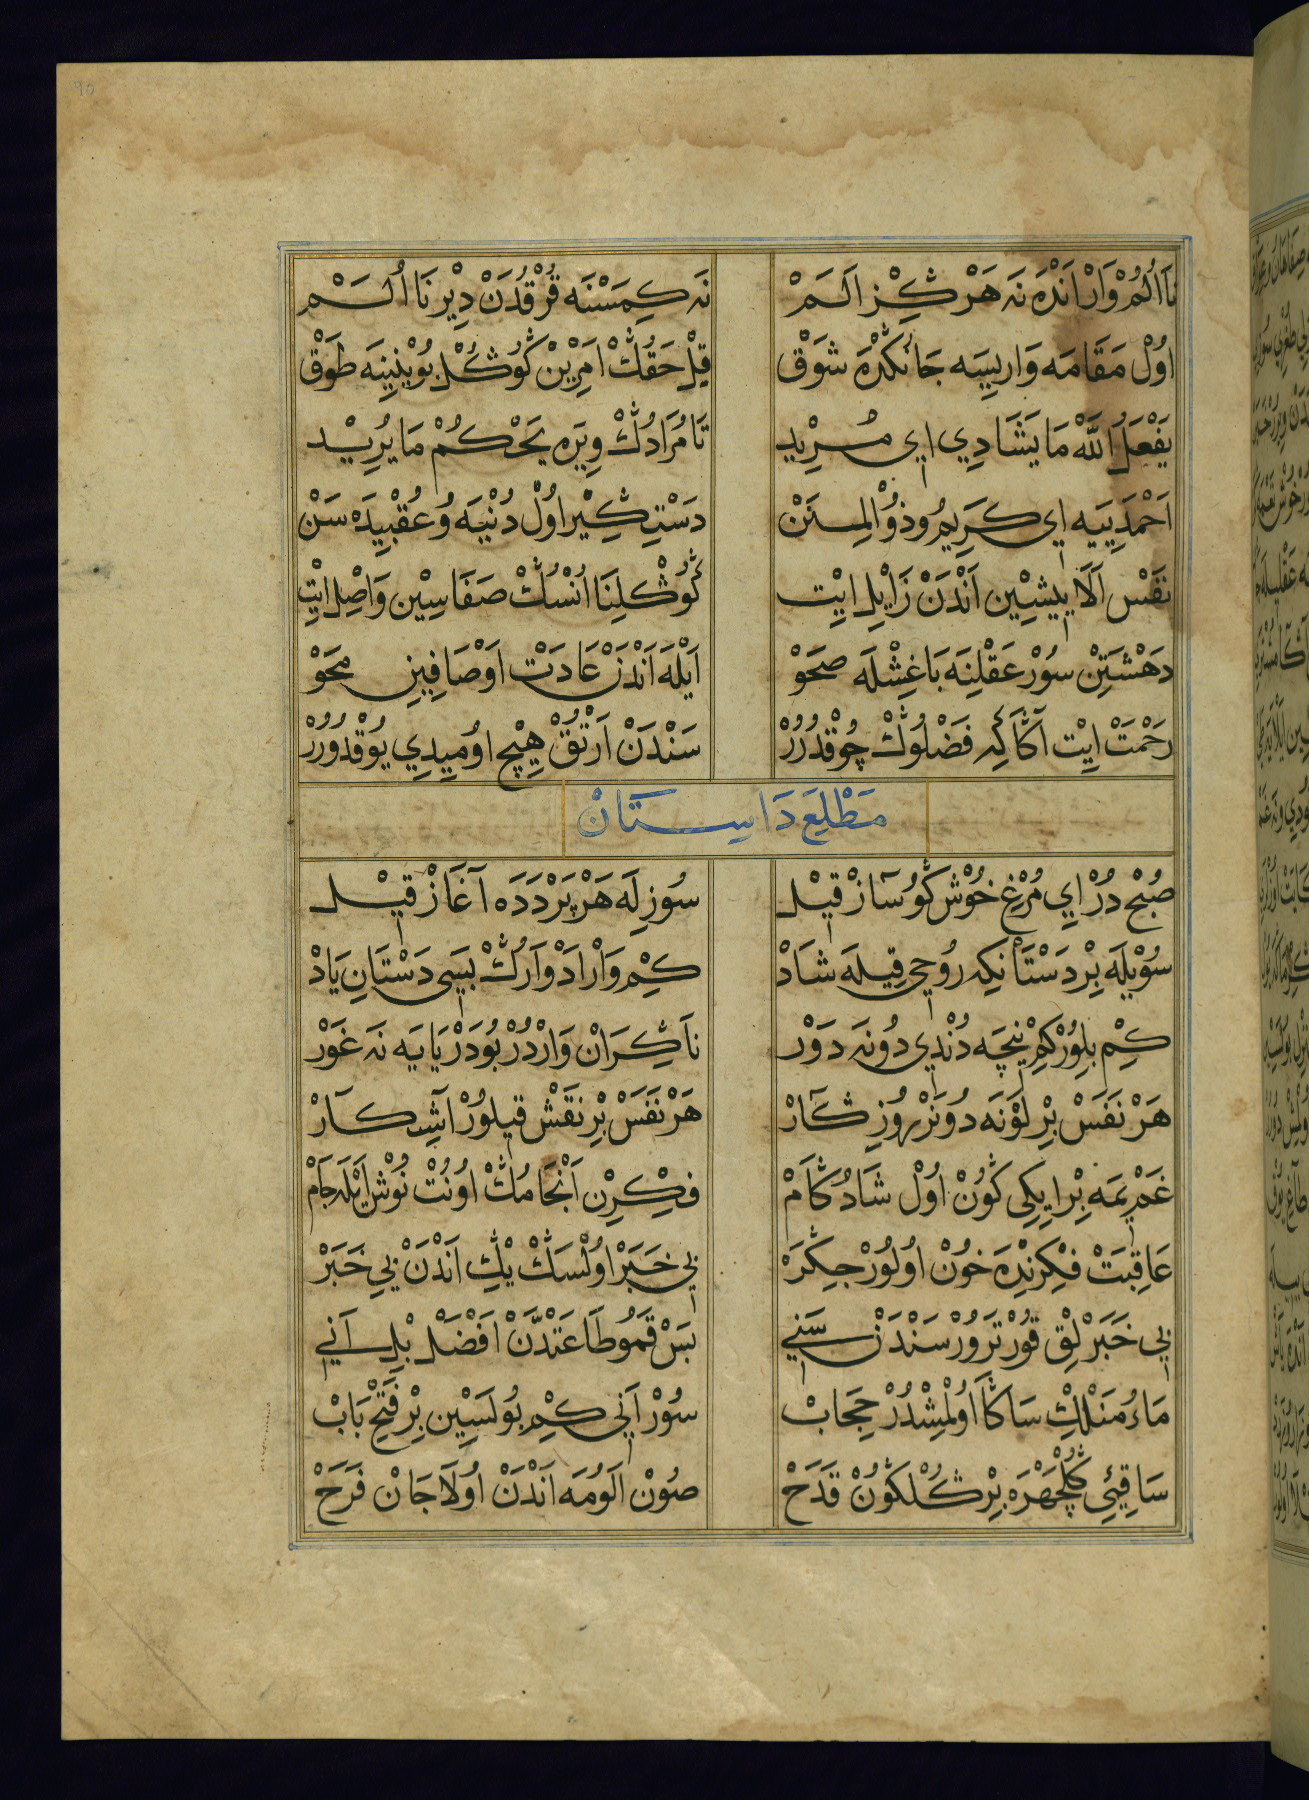 نَا اُلُمْ وَارْ اَنْدَه نَه هَرْ ڭِز اَلَمْ نَه كِمَسْنَه قُرْقُدَنْ دِيْر نَا اُلَمْ
اُولْ مَقَامَه وَارِيسَه جَانُڭْدَه شَوْقْ قِيلْ حَقُڭْ اَمْرِيْنْ كُوڭُلْ بُوينِينَه طَوْقْ
يَفْعَلُ اللّٰهْ مَا يَشَا دِي اي مُرِيْد تَا مُرَادُڭْ وِيَره يَحْكُمْ مَا يُرِيْد
اَحْمَدِييَه اي كَرِيمُ وذُوْالْمِنَنْ دَسْتِ ڭِيْر اُولْ دُنْيَه وُ عُقْبِيدَه سَنْ
نَفْسْ اَلَايِيشِيْن اَنْدَنْ زَايِل اِيْت كُوڭْلِنَا اُنْسُڭْ صَفَاسِيْن وَاصِل اِيْت
دَهْشَتِيْن سُورْ عَقْلِنَه بَاغِشْلَه صَحْوْ اَيْلَه اَنْدَنْ عَادَتْ اَوْصَافِيِن مَحْوْ
رَحْمَتْ اِيْت آڭَا كِه فَضْلُوڭْ چُوْقْدُرُرْ سَنْدَنْ اَرْتُقْ هِيْچ اوُمِيدِي يُوْقْدُورُرْ
مَطْلَعِ دَاسِتَانْ
صُبْح دُرْ اي مُرْغِ خُوْش ڭُو سَازْ قِيْل سُوزِلَه هَرْ پَرْدَدَه آغَازْ قِيْل
سُوْيلَه بِرْ دَسْتَانْكِه رُوحِي قِيلَه شَادْ كِم وَارَادْوَارُڭْ بَسِي دَسْتَانِ يَادْ
كِم بِلُورْكِمْ نِيچَه دُنْدِي دُونَه دَوْر نَا ڭِرَانْ وَارْدُرْ بُو دَرْيَايَه نَه غَوْر
هَرْ نَفَسْ بِرْ لَوْنَه دُونَرْ رُوزِ ڭَارْ هَرْ نَفَسْ بِرْ نَقْش قِيلُورْ آشِكَارْ
غَمْ يِمَه بِرْ اِيكِي كُونْ اُولْ شَادُ كَامْ فِكْرِنْ اَنْجَامُڭْ اُونُتْ نُوْش اَيْلَه جَامْ
عَاقِبَتْ فِكْرِنْدَه خُونْ اُولُورْ جِڭَرَه بِي خَبَرْ اُولْسَڭْ يِڭ اَنْدَنْ بِي خَبَرْ
بِي خَبَرْلِقْ قُورْتَرُورْ سَنْدَنْ سَنِي بَسْ قَمُو طَاعَتْدَنْ اَفْضَلْ بِل اَنِي
مَاءُ مَنْلِڭ سَاڭَا اُولْمِشْدُرْ حِجَابْ سُورْ اَنِي كِمْ بُولَسِيْن بِرْ فَتْحِ بَابْ
سَاقِيْيِ كُلْچَهْرَه بِرْ كُلْكُونْ قَدَحْ صُونْ اَلُومَه اَنْدَنْ اُولَا جَانْ فَرَحْ